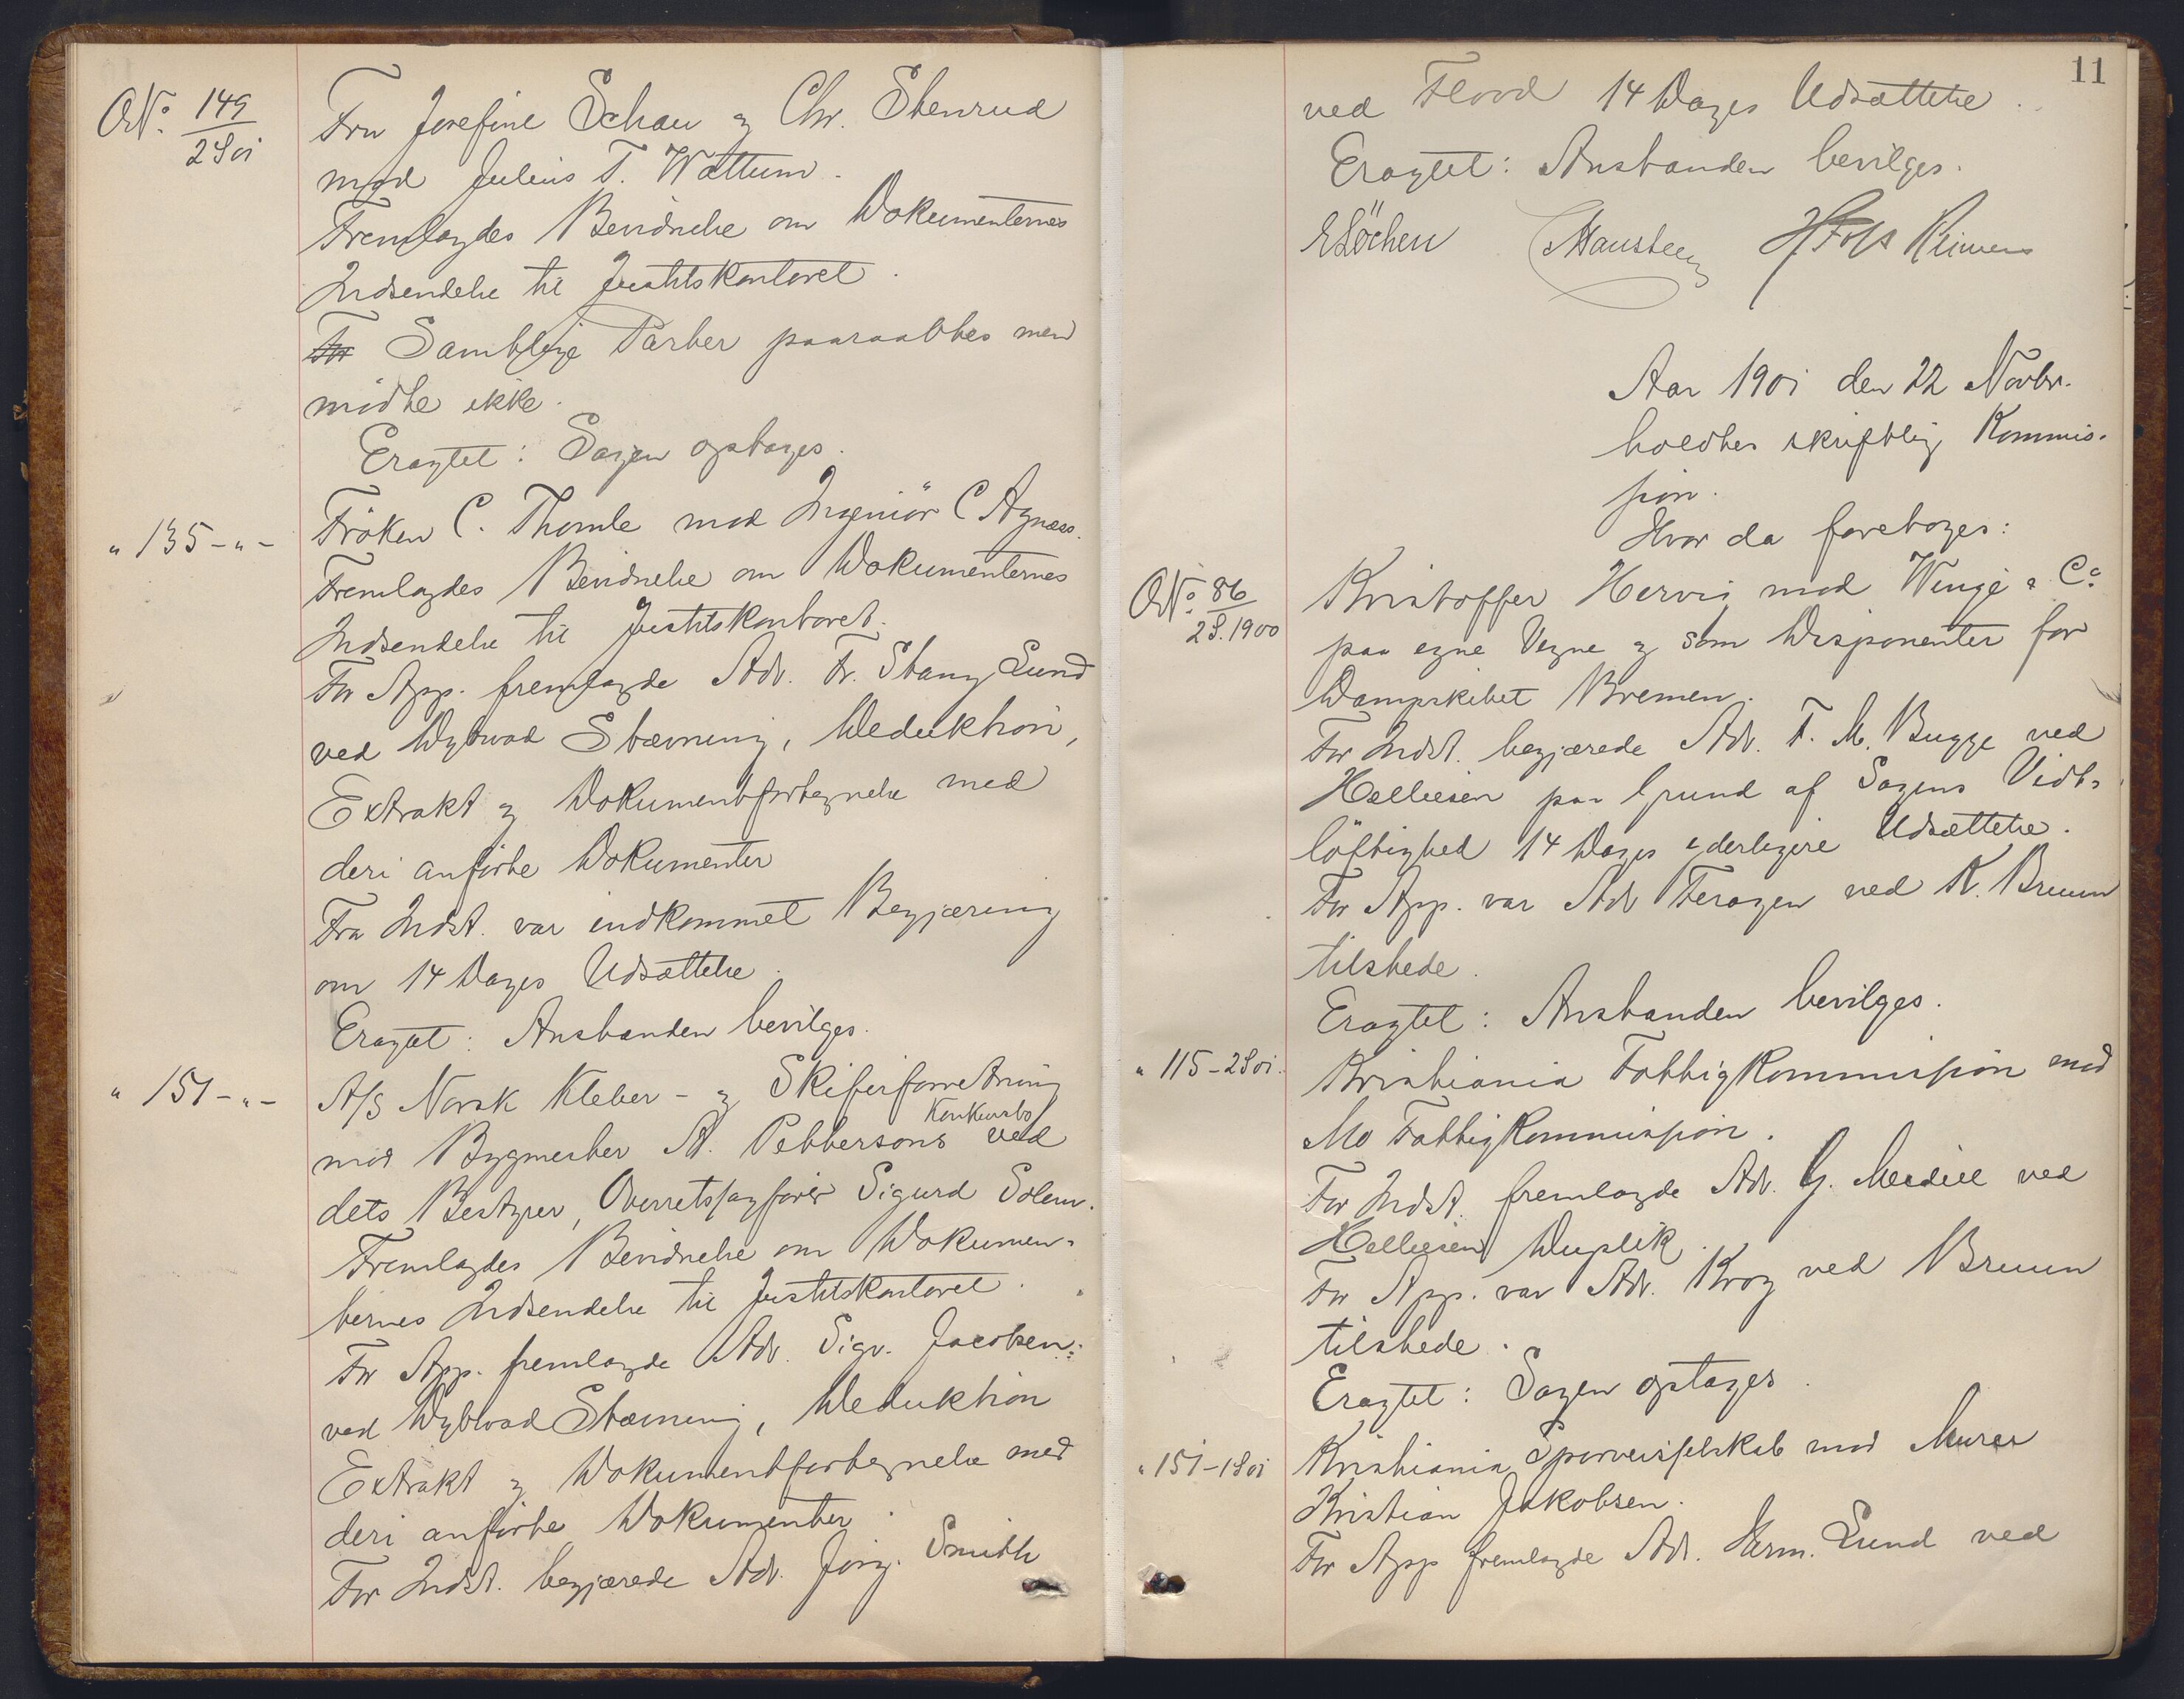 ONo. 149
2S01
Fru Josefine Schau og Chr. Stenrud
mod Julius T. Wattum.
Fremlagdes Bevidnelse om Dokumenternes
Indsendelse til Justitskontoret.
For Samtlige Parter paaraabtes men
mödte ikke.
Eragtet: Sagen optages.
" 135 - " -
Fröken C. Thomle mod Ingeniör C Agnæs.
Fremlagdes Bevidnelse om Dokumenternes
Indsendelse til Justitskontoret.
For App. fremlagde Adv. Fr. Stang Lund
ved Dybwad Stævning, Deduktion,
Extrakt og Dokumentfortegnelse med
deri anförte Dokumenter
Fra Indst. var indkommet Begjæring
om 14 Dages Udsættelse.
Eragtet: Anstanden bevilges.
" 151 - " -
A/S Norsk Kleber- og Skiferforretning
Konkursbo
mod Bygmester A. Pettersons ved
dets Bestyrer, Overretssagförer Sigurd Solem.
Fremlagdes Bevidnelse om Dokumen-
ternes Indsendelse til Justitskontoret.
For App. fremlagde Adv. Sigv. Jacobsen
ved Dybwad Stævning, Deduktion
Extrakt og Dokumentfortegnelse med
deri anförte Dokumenter.
For Indst. begjærede Adv. Jörg. Smith
11
ved Flood 14 Dages Udsættelse.
Eragtet: Anstanden bevilges.
ELöchen Hansteen Reimers
Aar 1901 den 22 Novbr.
holdtes skriftlig Kommis-
sion.
Hvor da foretoges:
ONo. 86
2S.1900
Kristoffer Hervig mod Winge & Co
paa egne Vegne og som Disponenter for
Dampskibet Bremen.
For Indst. begjærede Adv. F. M. Bugge ved
Helliesen paa Grund af Sagens Vidt-
löftighed 14 Dages yderligere Udsættelse.
For App. var Adv Feragen ved K. Bruun
tilstede.
Eragtet: Anstanden bevilges.
" 115 - 2S01.
Kristiania Fattigkommission mod
Mo Fattigkommission.
For Indst. fremlagde Adv. G. Meidell ved
Helliesen Duplik.
For App. var Adv. Krog ved Bruun
tilstede.
Eragtet: Sagen optages.
" 151 - 1S01
Kristiania Sporveisselskab mod Murer
Kristian Jakobsen.
For App fremlagde Adv. Herm. Lund ved